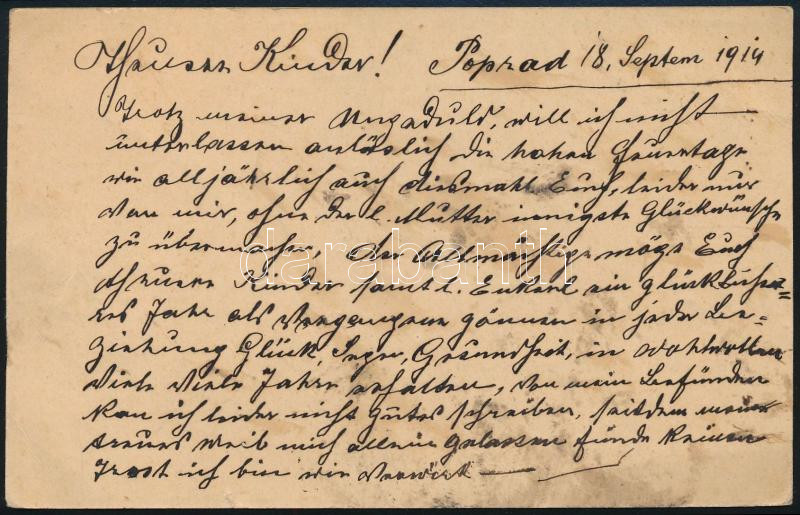 Theuere Kinder! Poprad 18. Septem 1914
Trotz meiner Ungeduld, will ich nicht
unterlassen anläslich die hohen Feuertage
wie alljährlich auch diesmahl Euch, leider nur
von mir, ohne der l. Mutter innigste Glückwünsche
zu übermachen, der Allmächtige möge Euch
theuere Kinder samt l. Enkerl ein glückliche=
res Jahr als Vergangene gönnen in jeder Be=
ziehung Glück, Segen, Gesundheit, in Wohlwollen
viele viele Jahre erhalten, von mein Befünden
kan ich leider nicht gutes schreiben, seitdem meine
treues Weib mich allein gelassen fünde keinen
Trost ich bin wie verwirt
darabanth